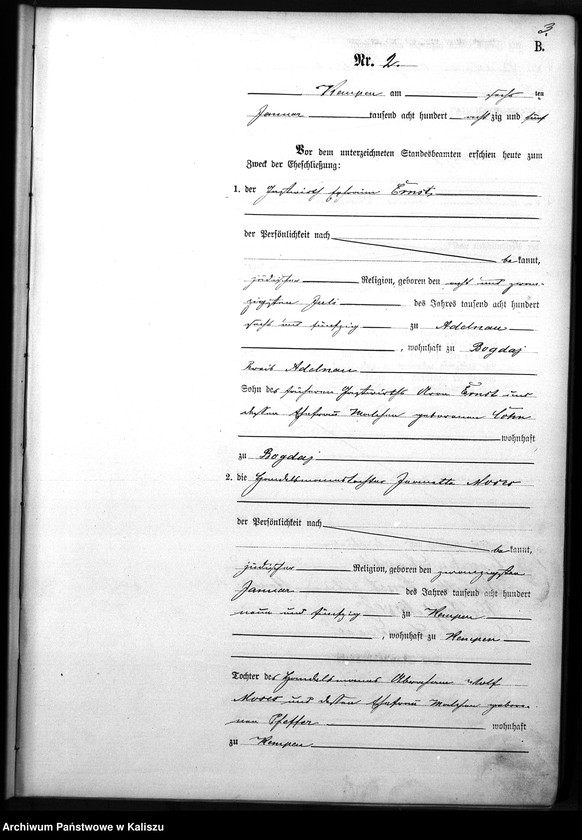 3
B.
Nr. 2.
Kempen am sechs ten
Januar tausend acht hundert acht zig und fünf
Vor dem unterzeichneten Standesbeamten erschien heute zum
Zweck der Eheschließung:
1. der Gastwirth Ephraim Ernst,
der Persönlichkeit nach
be kannt,
jüdischer Religion, geboren den acht und zwan-
zigsten Juli des Jahres tausend acht hundert
sechs und fünfzig zu Adelnau
, wohnhaft zu Bogdaj
Kreis Adelnau
Sohn des früheren Gastwirths Aron Ernst und
dessen Ehefrau Malchen geborenen Cohn
wohnhaft
zu Bogdaj
2. die Handelsmannstochter Jeanette Moses
der Persönlichkeit nach
be kannt,
jüdischer Religion, geboren den zwanzigsten
Januar des Jahres tausend acht hundert
neun und fünfzig zu Kempen
, wohnhaft zu Kempen
Tochter des Handelsmanns Abraham Wolf
Moses und dessen Ehefrau Malchen gebore-
nen Pfeffer wohnhaft
zu Kempen
Archiwum Państwowe w Kaliszu